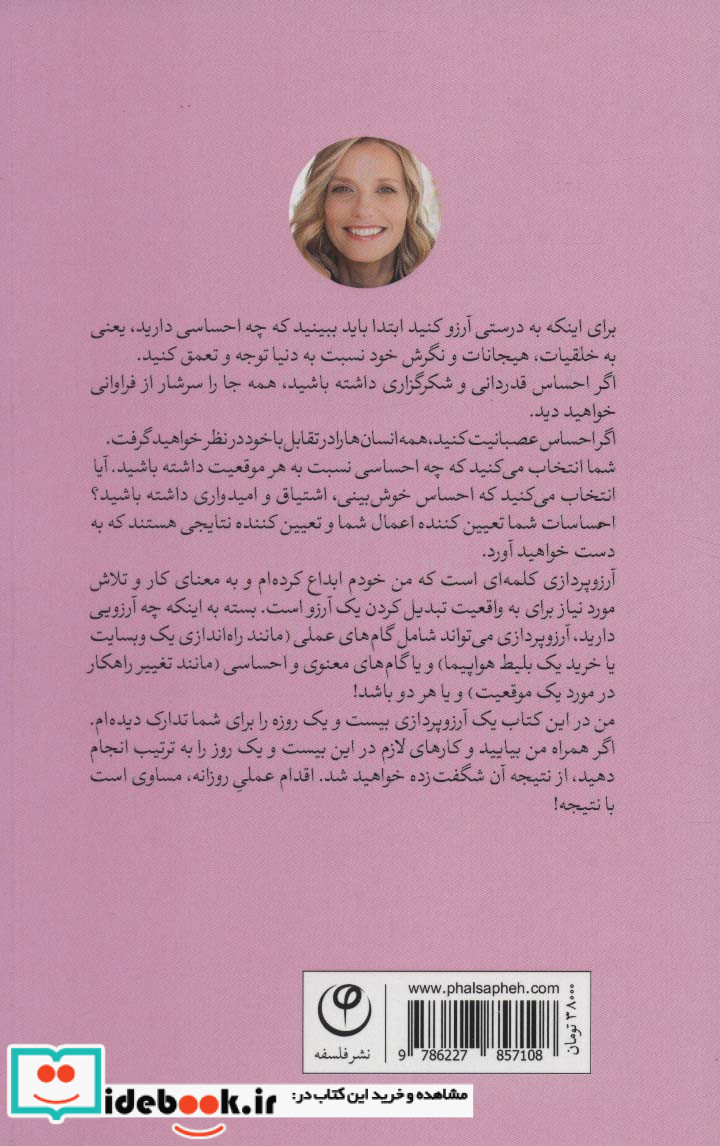 برای اینکه به درستی آرزو کنید ابتدا باید ببینید که چه احساسی دارید، یعنی
به خلقیات، هیجانات و نگرش خود نسبت به دنیا توجه و تعمق کنید.
اگر احساس قدردانی و شکرگزاری داشته باشید، همه جا را سرشار از فراوانی
خواهید دید.
اگر احساس عصبانیت کنید، همه انسان‌ها را در تقابل با خود در نظر خواهید گرفت.
شما انتخاب می‌کنید که چه احساسی نسبت به هر موقعیت داشته باشید. آیا
انتخاب می‌کنید که احساس خوش‌بینی، اشتیاق و امیدواری داشته باشید؟
احساسات شما تعیین کننده اعمال شما و تعیین کننده نتایجی هستند که به
دست خواهید آورد.
آرزوپردازی کلمه‌ای است که من خودم ابداع کرده‌ام و به معنای کار و تلاش
مورد نیاز برای به واقعیت تبدیل کردن یک آرزو است. بسته به اینکه چه آرزویی
دارید، آرزوپردازی می‌تواند شامل گام‌های عملی (مانند راه‌اندازی یک وبسایت
یا خرید یک بلیط هواپیما) و یا گام‌های معنوی و احساسی (مانند تغییر راهکار
در مورد یک موقعیت) و یا هر دو باشد!
من در این کتاب یک آرزوپردازی بیست و یک روزه را برای شما تدارک دیده‌ام.
اگر همراه من بیایید و کارهای لازم در این بیست و یک روز را به ترتیب انجام
دهید، از نتیجه آن شگفت‌زده خواهید شد. اقدام عملیِ روزانه، مساوی است
با نتیجه!
www.phalsapheh.com
۳۸۰۰۰ تومان
نشر فلسفه
9 786227 857108
مشاهده و خرید این کتاب در:
idebook.ir